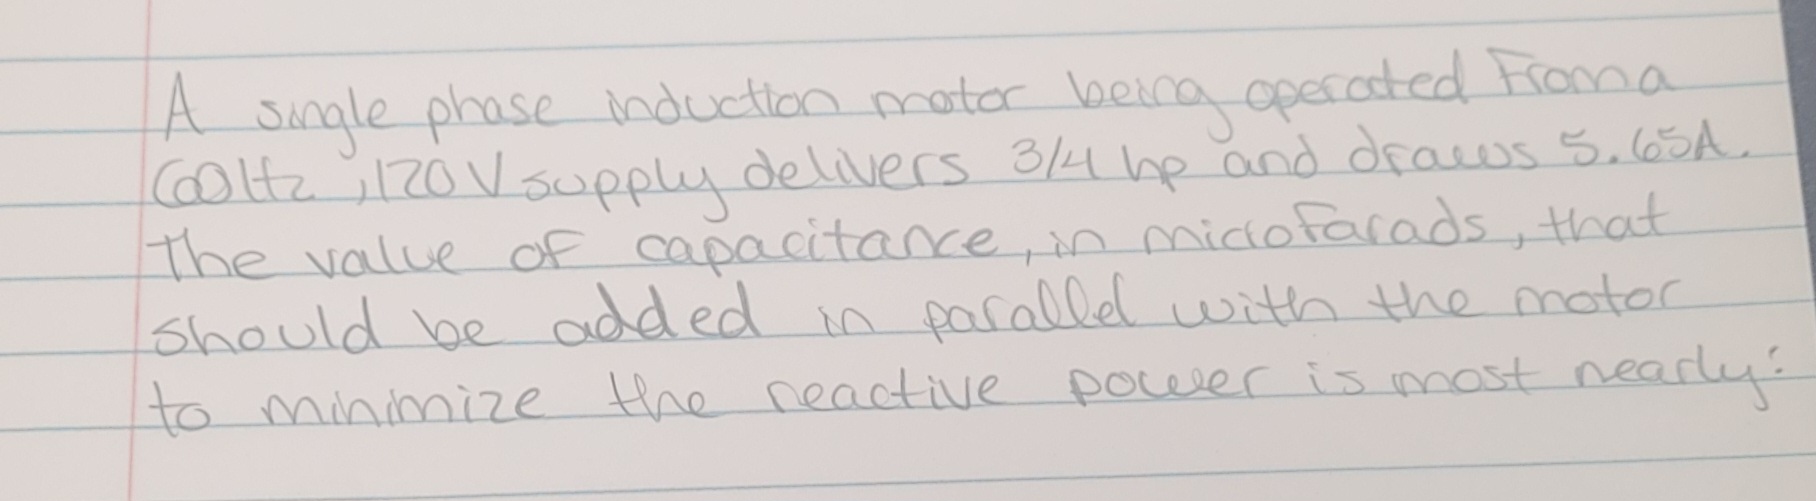 A single phase induction motor being operated From a
60Hz, 120V supply delivers 3/4 hp and draws 5.65A.
The value of capacitance, in microfarads, that
should be added in parallel with the motor
to minimize the reactive power is most nearly: